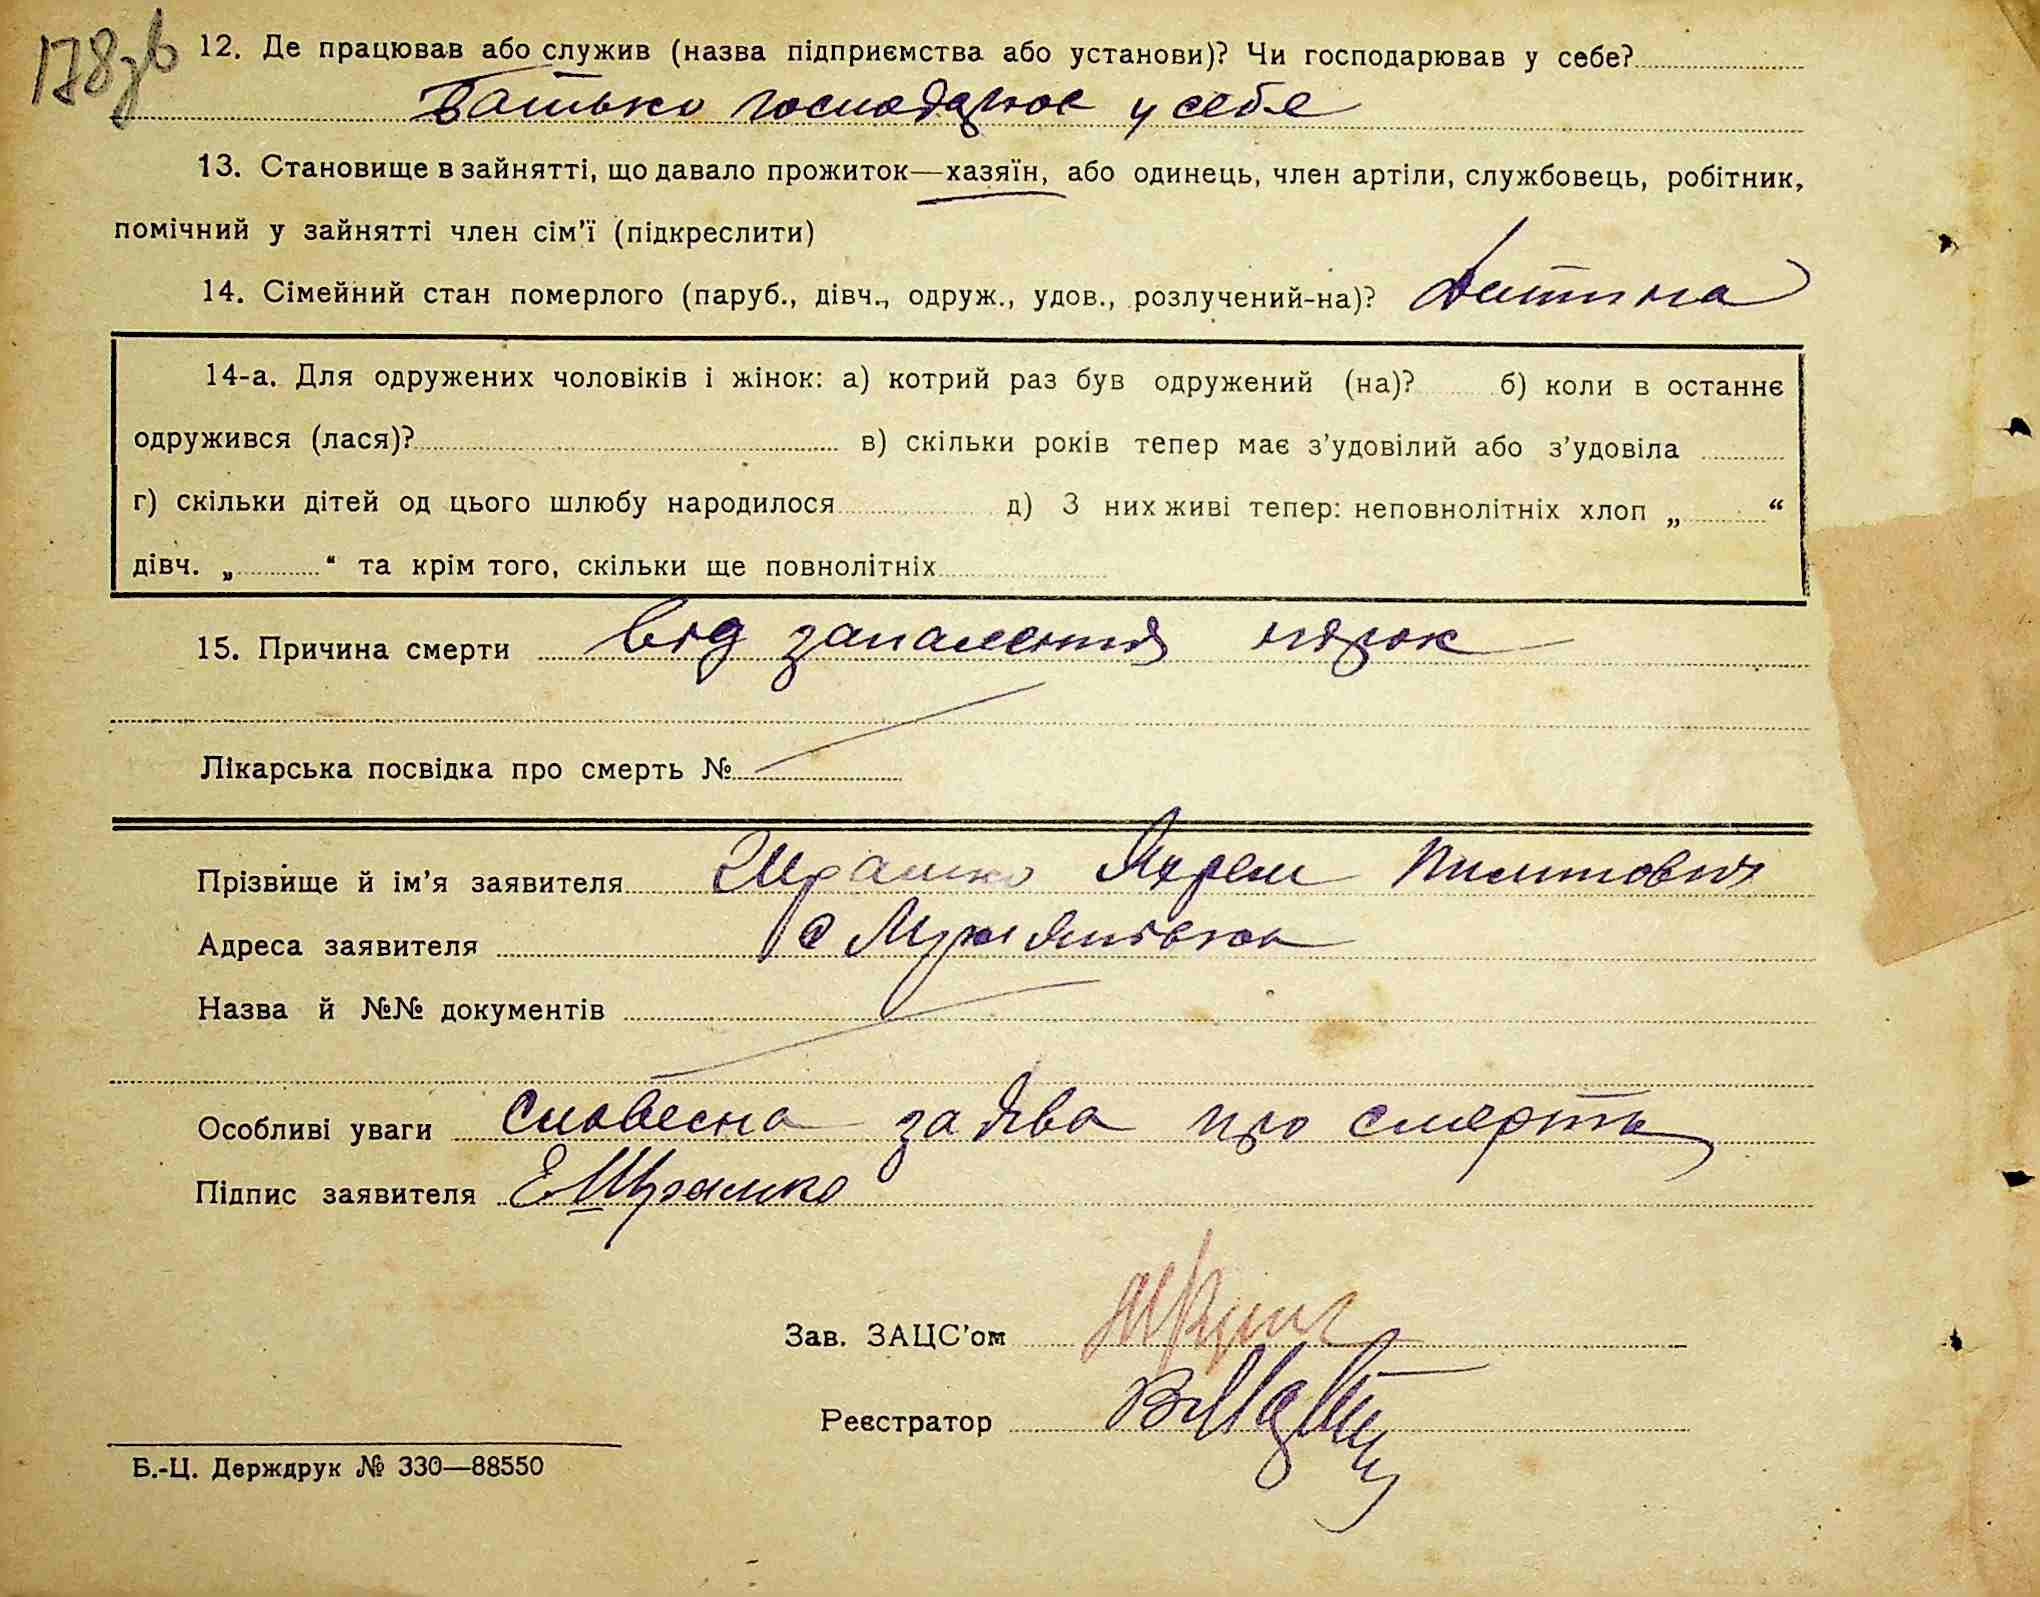 178зв
12. Де працював або служив (назва підприємства або установи)? Чи господарював у себе?
Батько господарює у себе
13. Становище в зайнятті, що давало прожиток—хазяїн, або одинець, член артіли, службовець, робітник,
помічний у зайнятті член сім’ї (підкреслити)
14. Сімейний стан померлого (паруб., дівч., одруж., удов., розлучений-на)? Дитина
14-а. Для одружених чоловіків і жінок: а) котрий раз був одружений (на)? б) коли в останнє
одружився (лася)? в) скільки років тепер має з’удовілий або з’удовіла
г) скільки дітей од цього шлюбу народилося д) З них живі тепер: неповнолітніх хлоп „ “
дівч. „ “ та крім того, скільки ще повнолітніх
15. Причина смерти від запалення нирок
Лікарська посвідка про смерть №
Прізвище й ім’я заявителя Шрамко Яхрем
Адреса заявителя с
Назва й №№ документів
Особливі уваги словесна заява про смерть
Підпис заявителя Е Шрамко
Зав. ЗАЦС’ом
Реєстратор
Б.-Ц. Держдрук № 330—88550